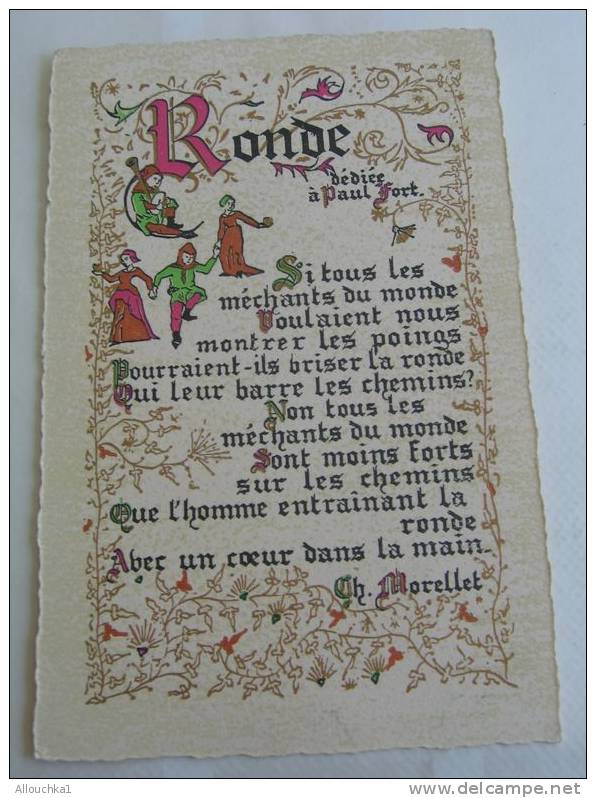 Ronde
dédiée
à Paul Fort.
Si tous les
méchants du monde
Voulaient nous
montrer les poings
Pourraient-ils briser la ronde
Qui leur barre les chemins?
Non tous les
méchants du monde
Sont moins forts
sur les chemins
Que l'homme entraînant la
ronde
Avec un cœur dans la main.
Ch. Morellet
Allouchka1
delcampe.net